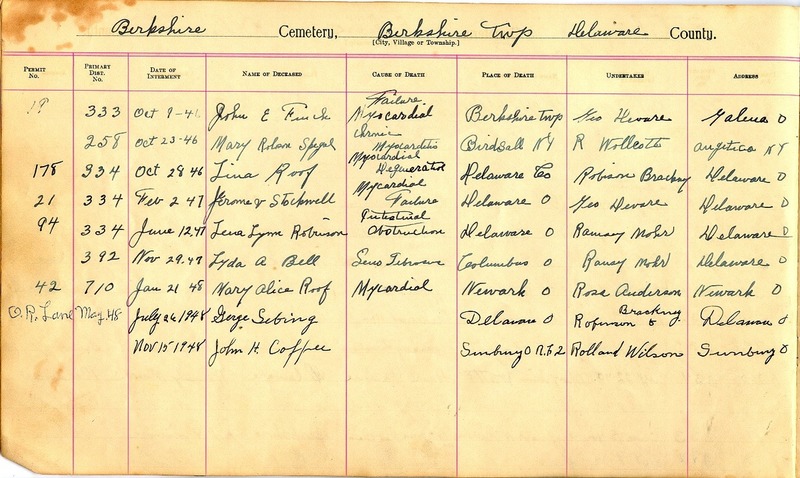 Berkshire Cemetery, Berkshire Twp Delaware County.
[City, Village or Township.]
Permit No. Primary Dist. No. Date of Interment Name of Deceased Cause of Death Place of Death Undertaker Address
Failure
333 Oct 9-46 John E Myocardial Berkshire Twp Geo Galena O
258 Oct 23-46 Mary Myocarditis Birdsall NY R Wollcott Angelica NY
Myocardial
178 334 Oct 28 46 Lina Roof Degeneration Delaware Co Delaware O
Myocardial
21 334 Feb 2 47 Jerome V Stockwell Failure Delaware O Geo Delaware O
Intestinal
94 334 June 12, 47 Lena Lynn Robinson Obstruction Delaware O Ramsay Mohr Delaware O
392 Nov 29, 47 Lyda A Bell Columbus O Ramsy Mohr Delaware O
42 710 Jan 21 48 Mary Alice Roof Myocardial Newark O Ross Anderson Newark O
O.R. Lane May 48 July 26 1948 Delaware O Delaware O
Nov 15 1948 John H. Coffee Sunbury O R.F.2 Rolland Wilson Sunbury O